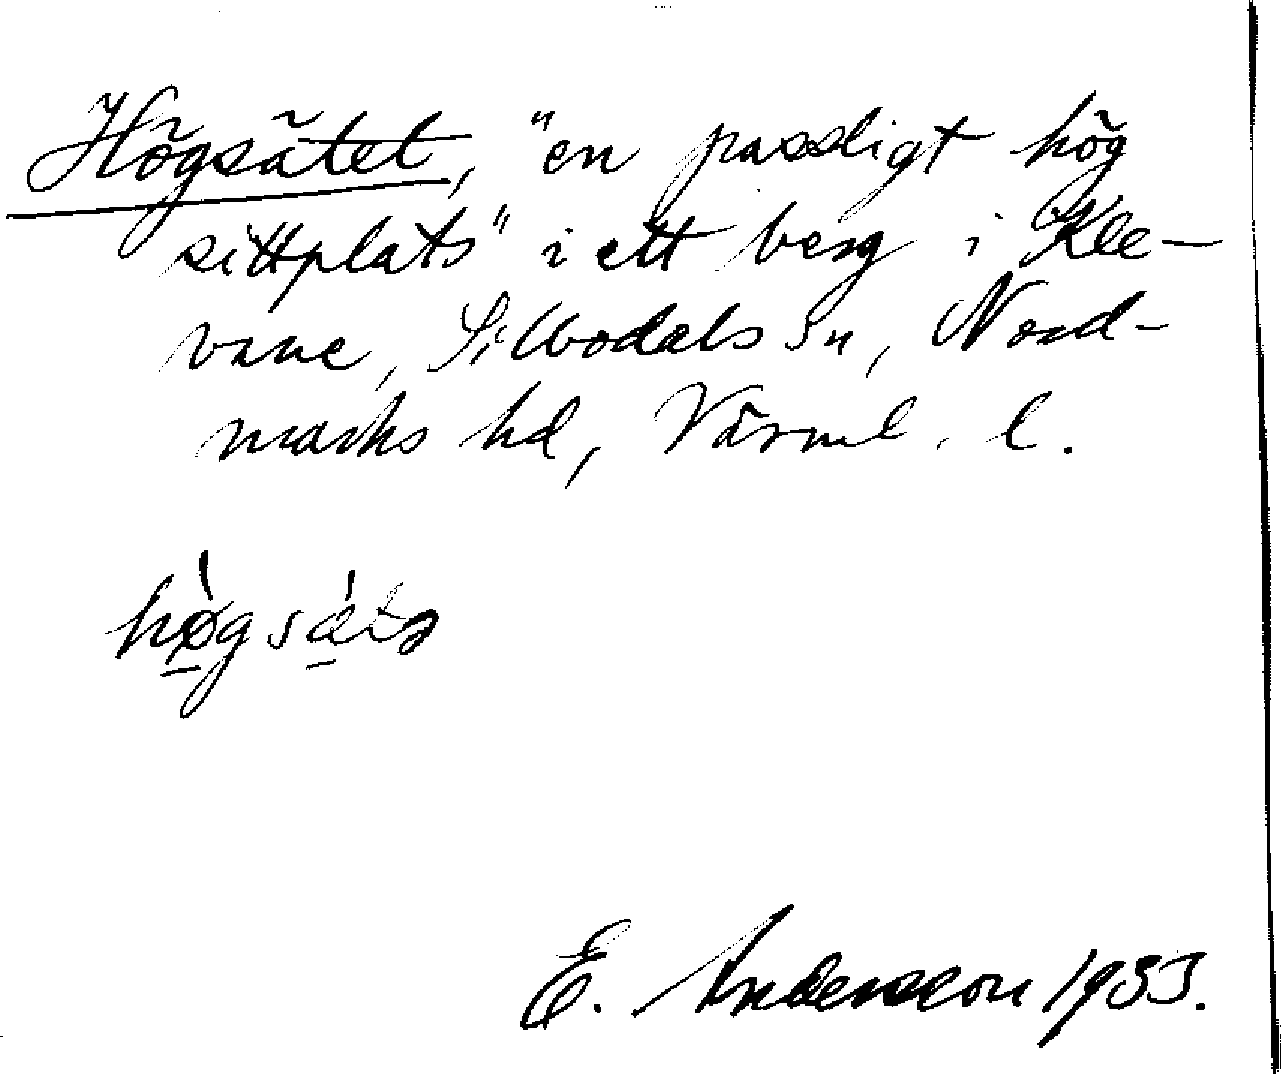 Högsätet, "en passligt hög
sittplats" i ett berg i Kle-
vane, Silbodals sn, Nord-
marks hd, Värml. l.
hø̀gsǽtə
E. Andersson 1933.